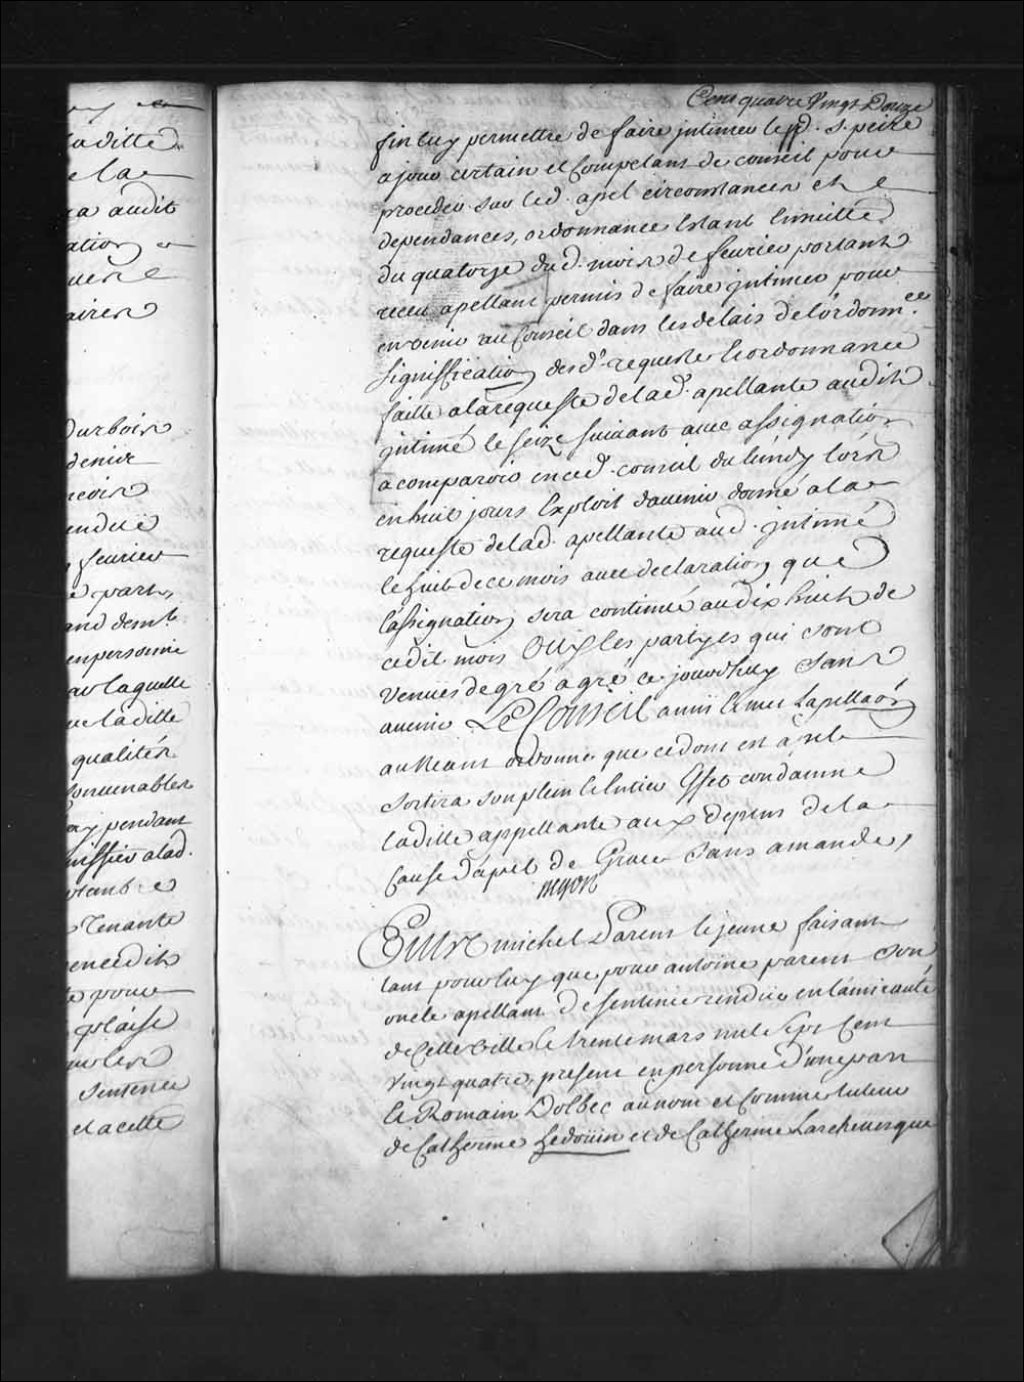 Cent quatre Vingt Douze
fin luy permettre de faire jntimer led. S. peire
a jour certain et Competant de conseil pour
proceder sur led. apel circonstances et
dependances, ordonnance Estant Ensuitte
du quatorze dud. mois de feurier portant
receu apellant permis de faire jntimer pour
en venir au Conseil dans les delais de l'ordonn.ce
Signiffication desd. requeste & ordonnance
faitte a la requeste de lad. apellante audit
jntimé le seize suiuant auec assignation
a comparoir en ced. conseil du lundy lors
en huit jours Exploit d'auenir donné a la
requeste de lad. apellante aud. jntimé
le huit de ce mois auec declaration que
l'assignation sera continuë au dix huit de
cedit mois Oüy les partyes qui sont
venües de gré a gré ce jourd'huy sans
auenir Le Conseil a mis & met l'apellaõn
au Neant ordonne que ce dont est apel
Sortira son plein & Entier Effet condamne
laditte appellante aux depens de la
Cause d'apel de Grace sans amande,
Entre michel Parent le jeune faisant
tant pour luy que pour antoine parent son
oncle apellant de sentence rendüe en l'amirauté
de Cette Ville le trente mars mil Sept Cent
vingt quatre, present en personne d'une part
& Romain Dolbec au nom et Comme tuteur
de Catherine hedoüin et de Catherine Larcheuesque
aditte
e la
ra audit
ation
aires
Durbois
denire
ecois
endüë
feurier
e part,
and dem.t
en personne
ar laquelle
ue laditte
qualités
Conuenables
ay pendant
missier a lad.
tenante
en cedit
te pour
plaise
Sentence
et a cette